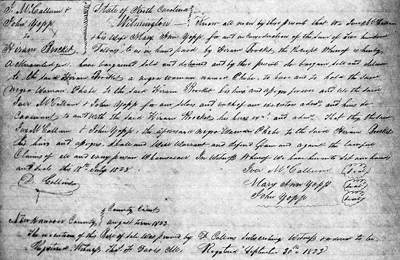 J. McCallum & State of North Carolina
John Yopp Wilmington Know all men by these present that We Jane McCallum
to his Wife Mary Ann Yopp for and in consideration of the sum of Two hundred
Hiram Brockett Dollars to us in hand paid by Hiram Brockett, the Receipt Whereof is hereby
acknowledged, have bargained sold and delivered and by this present do bargain sell and deliver
to the said Hiram Brockett a negro woman named Phebe to have and to hold the said
Negro Woman Phebe to the said Hiram Brockett his heirs and assigns forever and We the said
McCallum & John Yopp for our selves and each of our executors admr and heirs do
Covenant to and With the said Hiram Brockett his heirs and admr that they the said
McCallum & John Yopp the aforesaid negro Woman Phebe to the said Hiram Brockett
his heirs and assigns shall and Will Warrant and defend from and against the lawful
Claims of all and every person Whomsoever In Witness Whereof We have hereunto set our hands
and seals this 18th July 1823
D. Collins McCallum (seal)
Mary Ann Yopp (seal)
John Yopp (seal)
New Hanover County County Court
August term 1823
The execution of this Bill of sale was proved by D. Collins subscribing Witness ordered to be
Registered Registered September 20th 1823